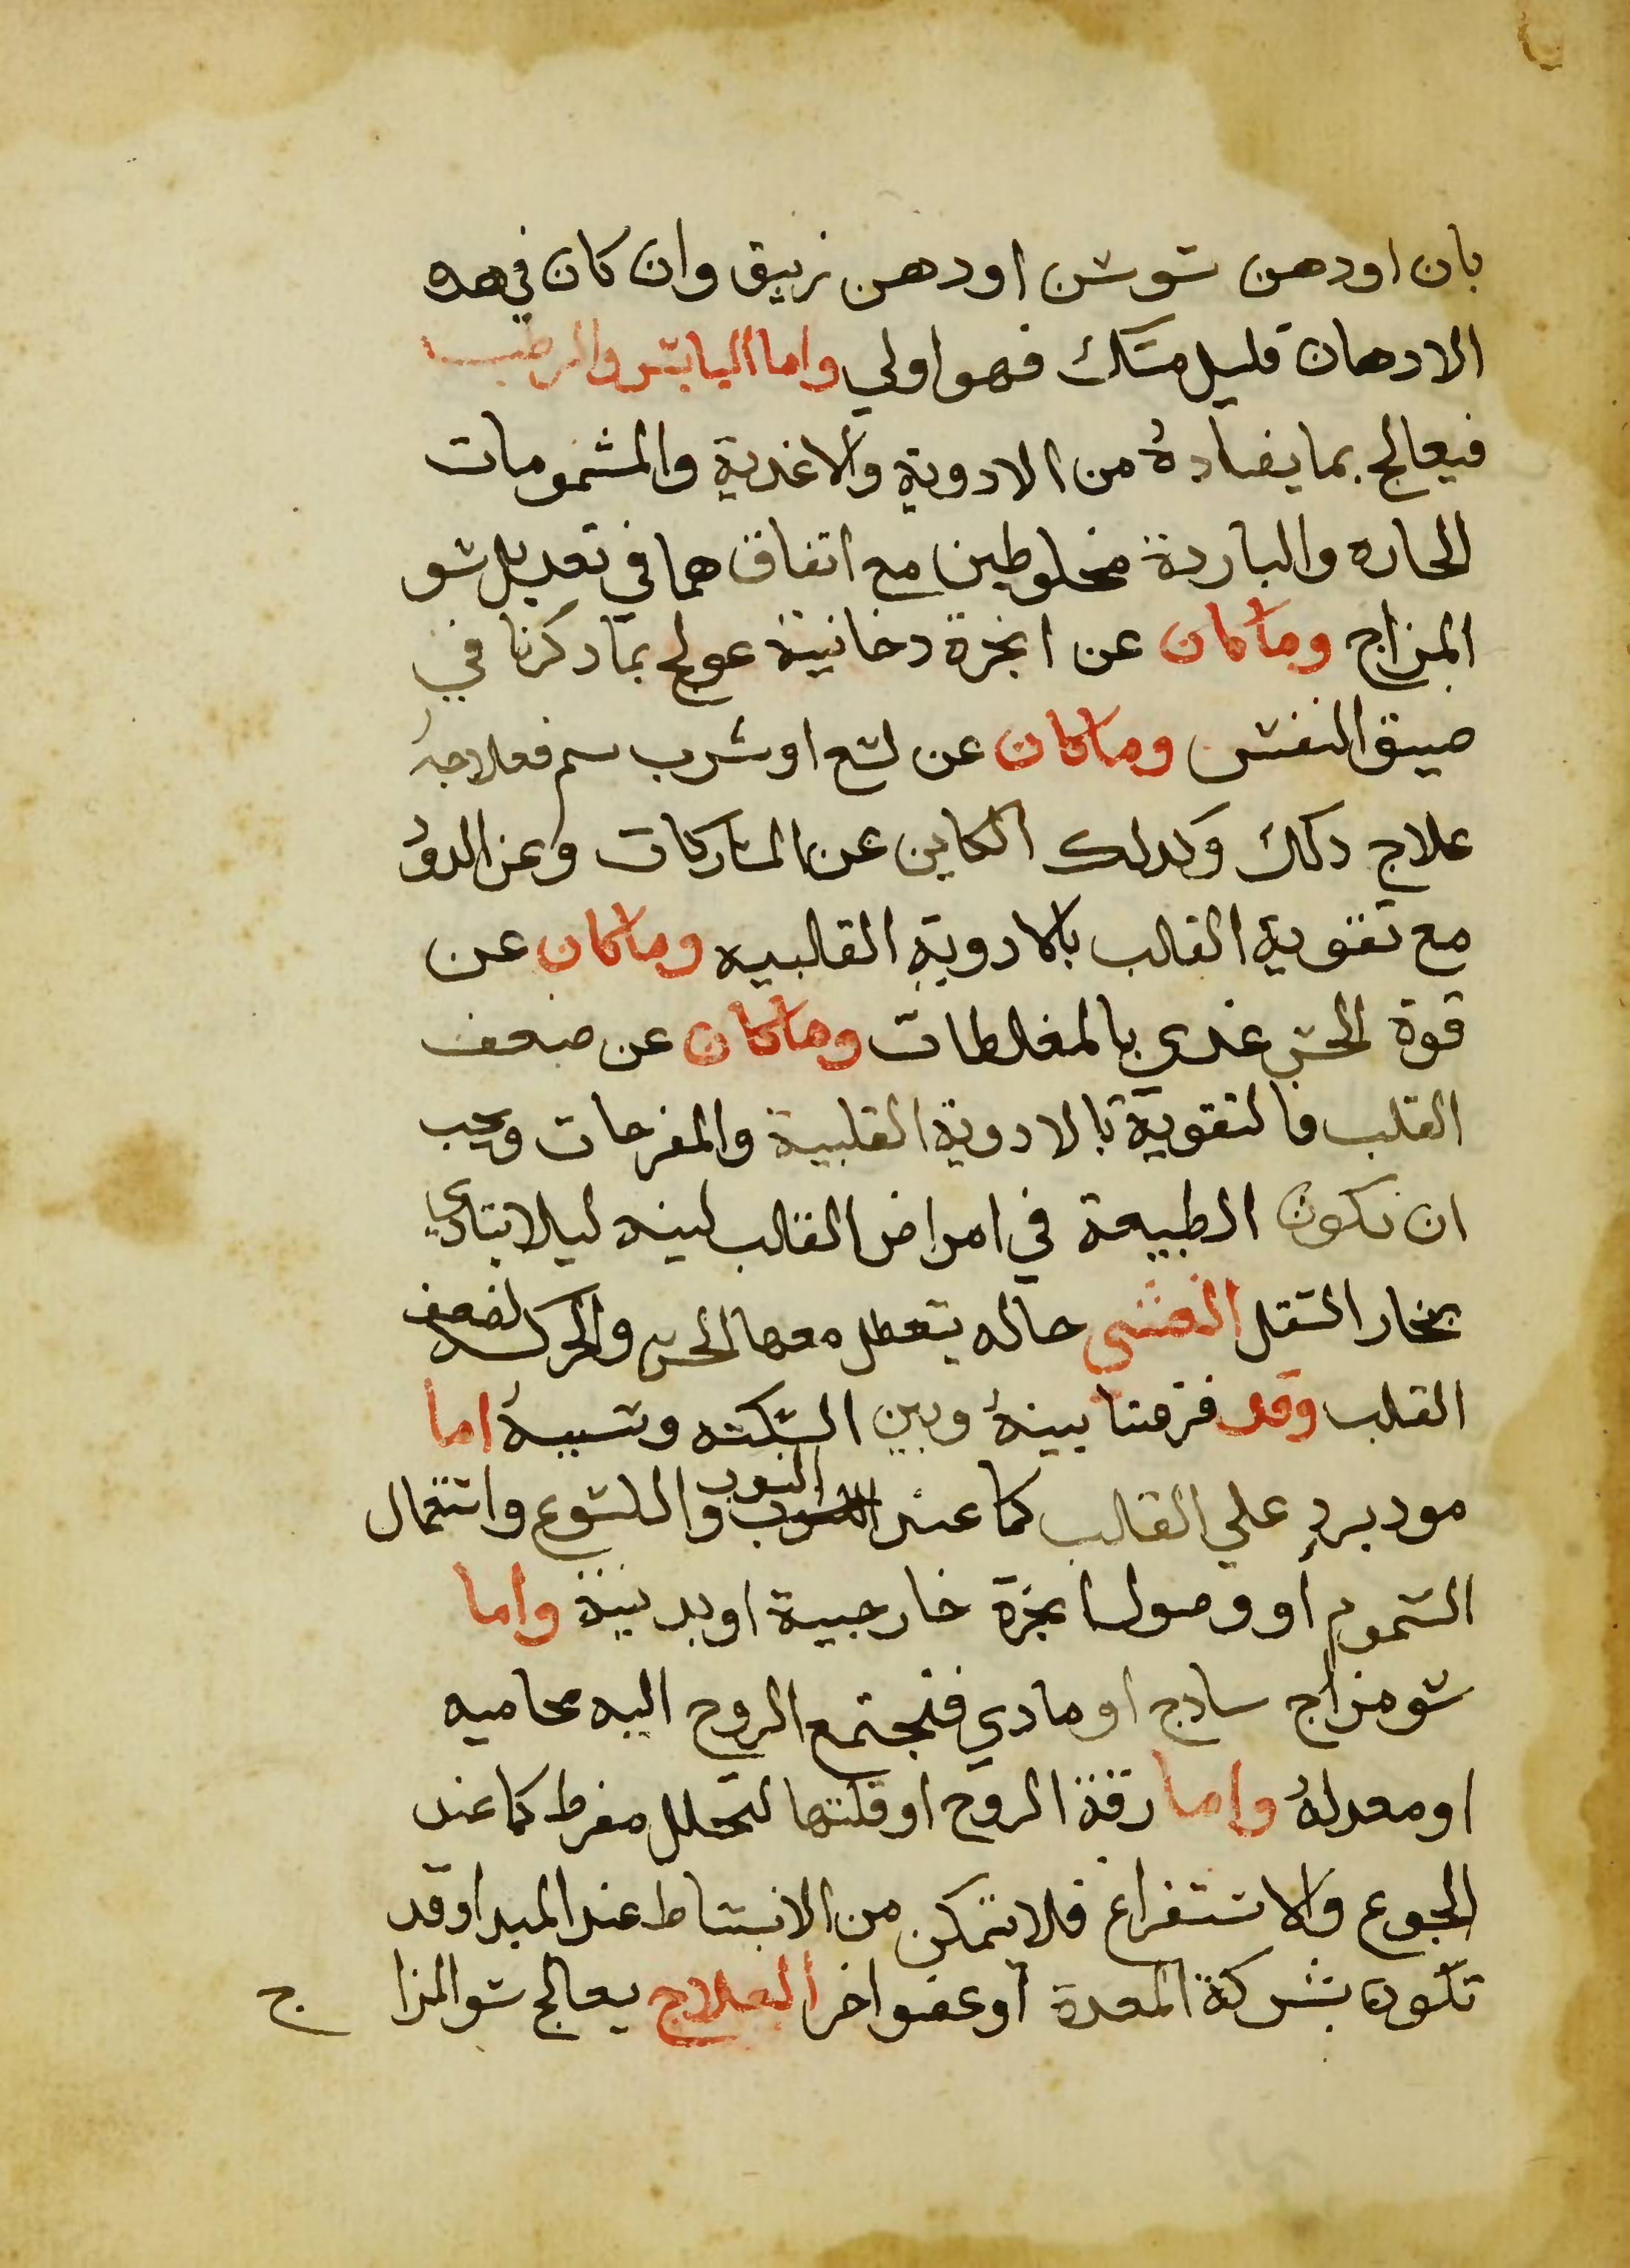 بان اودهن سوسن اودهن زنبق وان كان في هده
الادهان قليل مسك فهو اولي واما اليابس والرطب
فيعالج بما يضاده من الادوية والاغدية والمشمومات
الحاره والباردة مخلوطين مع اتفاق هما في تعديل سو
المزاج وما كان عن ابخرة دخانية عولج بما دكرنا في
ضيق النفس وما كان عن لسع او شرب سم فعلاجه
علاج دلك وكدلك الكاين عن المشاركات وعن الدود
مع تقوية القلب بالادوية القلبيه وما كان عن
قوة الحس غدي بالمغلطات وما كان عن ضعف
القلب فالتقوية بالادوية القلبية والمفرحات ويجب
ان تكون الطبيعة في امراض القلب لينه ليلا يتادي
بخار الثقل الغشي حاله يتعطل معها الحس والحركه لضعف
القلب وقد فرقنا بينه وبين السكته وسببه اما
مود يرد علي القلب كما عند النوب واللسوع واستعمال
السموم او وصول ابخرة خارجية او بدنية واما
سو مزاج سادج او مادي فتجتمع الروح اليه محاميه
او معدله واما رقة الروح او قلتها لتحلل مفرط كما عند
الجوع والاستفراغ فلا تتمكن من الانبساط عند المبدا وقد
تكون بشركة المعدة او عضو اخر العلاج يعالج سو المزا ج